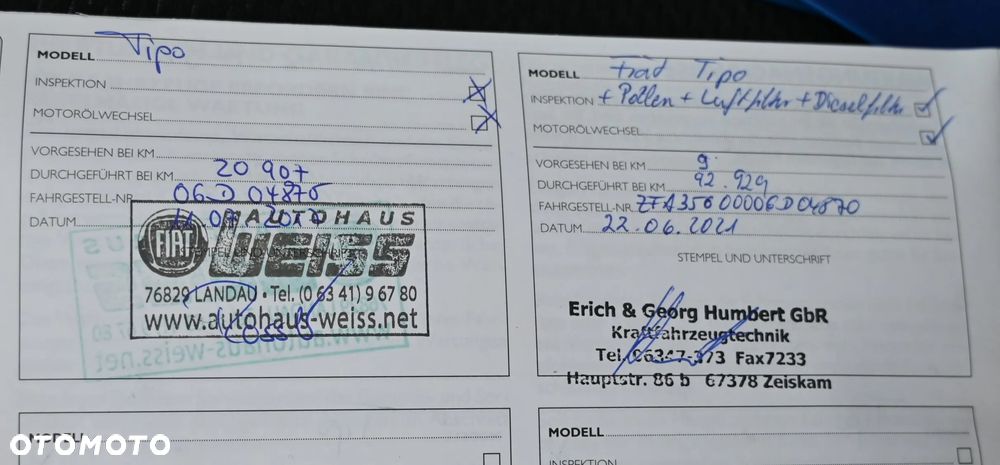 MODELL Tipo
INSPEKTION
MOTORÖLWECHSEL
VORGESEHEN BEI KM
DURCHGEFÜHRT BEI KM 20 907
FAHRGESTELL-NR. 06D 04870
DATUM
AUTOHAUS
WEISS
FIAT
76829 LANDAU • Tel. (0 63 41) 9 67 80
www.autohaus-weiss.net
MODELL Fiat Tipo
INSPEKTION + Pollen + Luftfilter + Dieselfilter
MOTORÖLWECHSEL
VORGESEHEN BEI KM
DURCHGEFÜHRT BEI KM 92.929
FAHRGESTELL-NR. ZFA35600006D04870
DATUM 22.06.2021
STEMPEL UND UNTERSCHRIFT
Erich & Georg Humbert GbR
Kraftfahrzeugtechnik
Tel. 06347-373 Fax7233
Hauptstr. 86 b 67378 Zeiskam
MODELL
MODELL
INSPEKTION
OTOMOTO